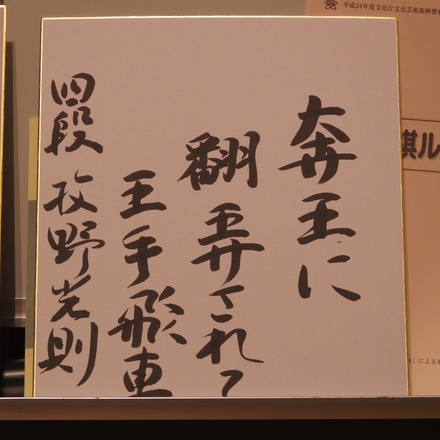 奔王に
翻弄されて
王手飛車
四段 牧野光則
平成24年度文化庁文化芸術振興費
棋ル
による